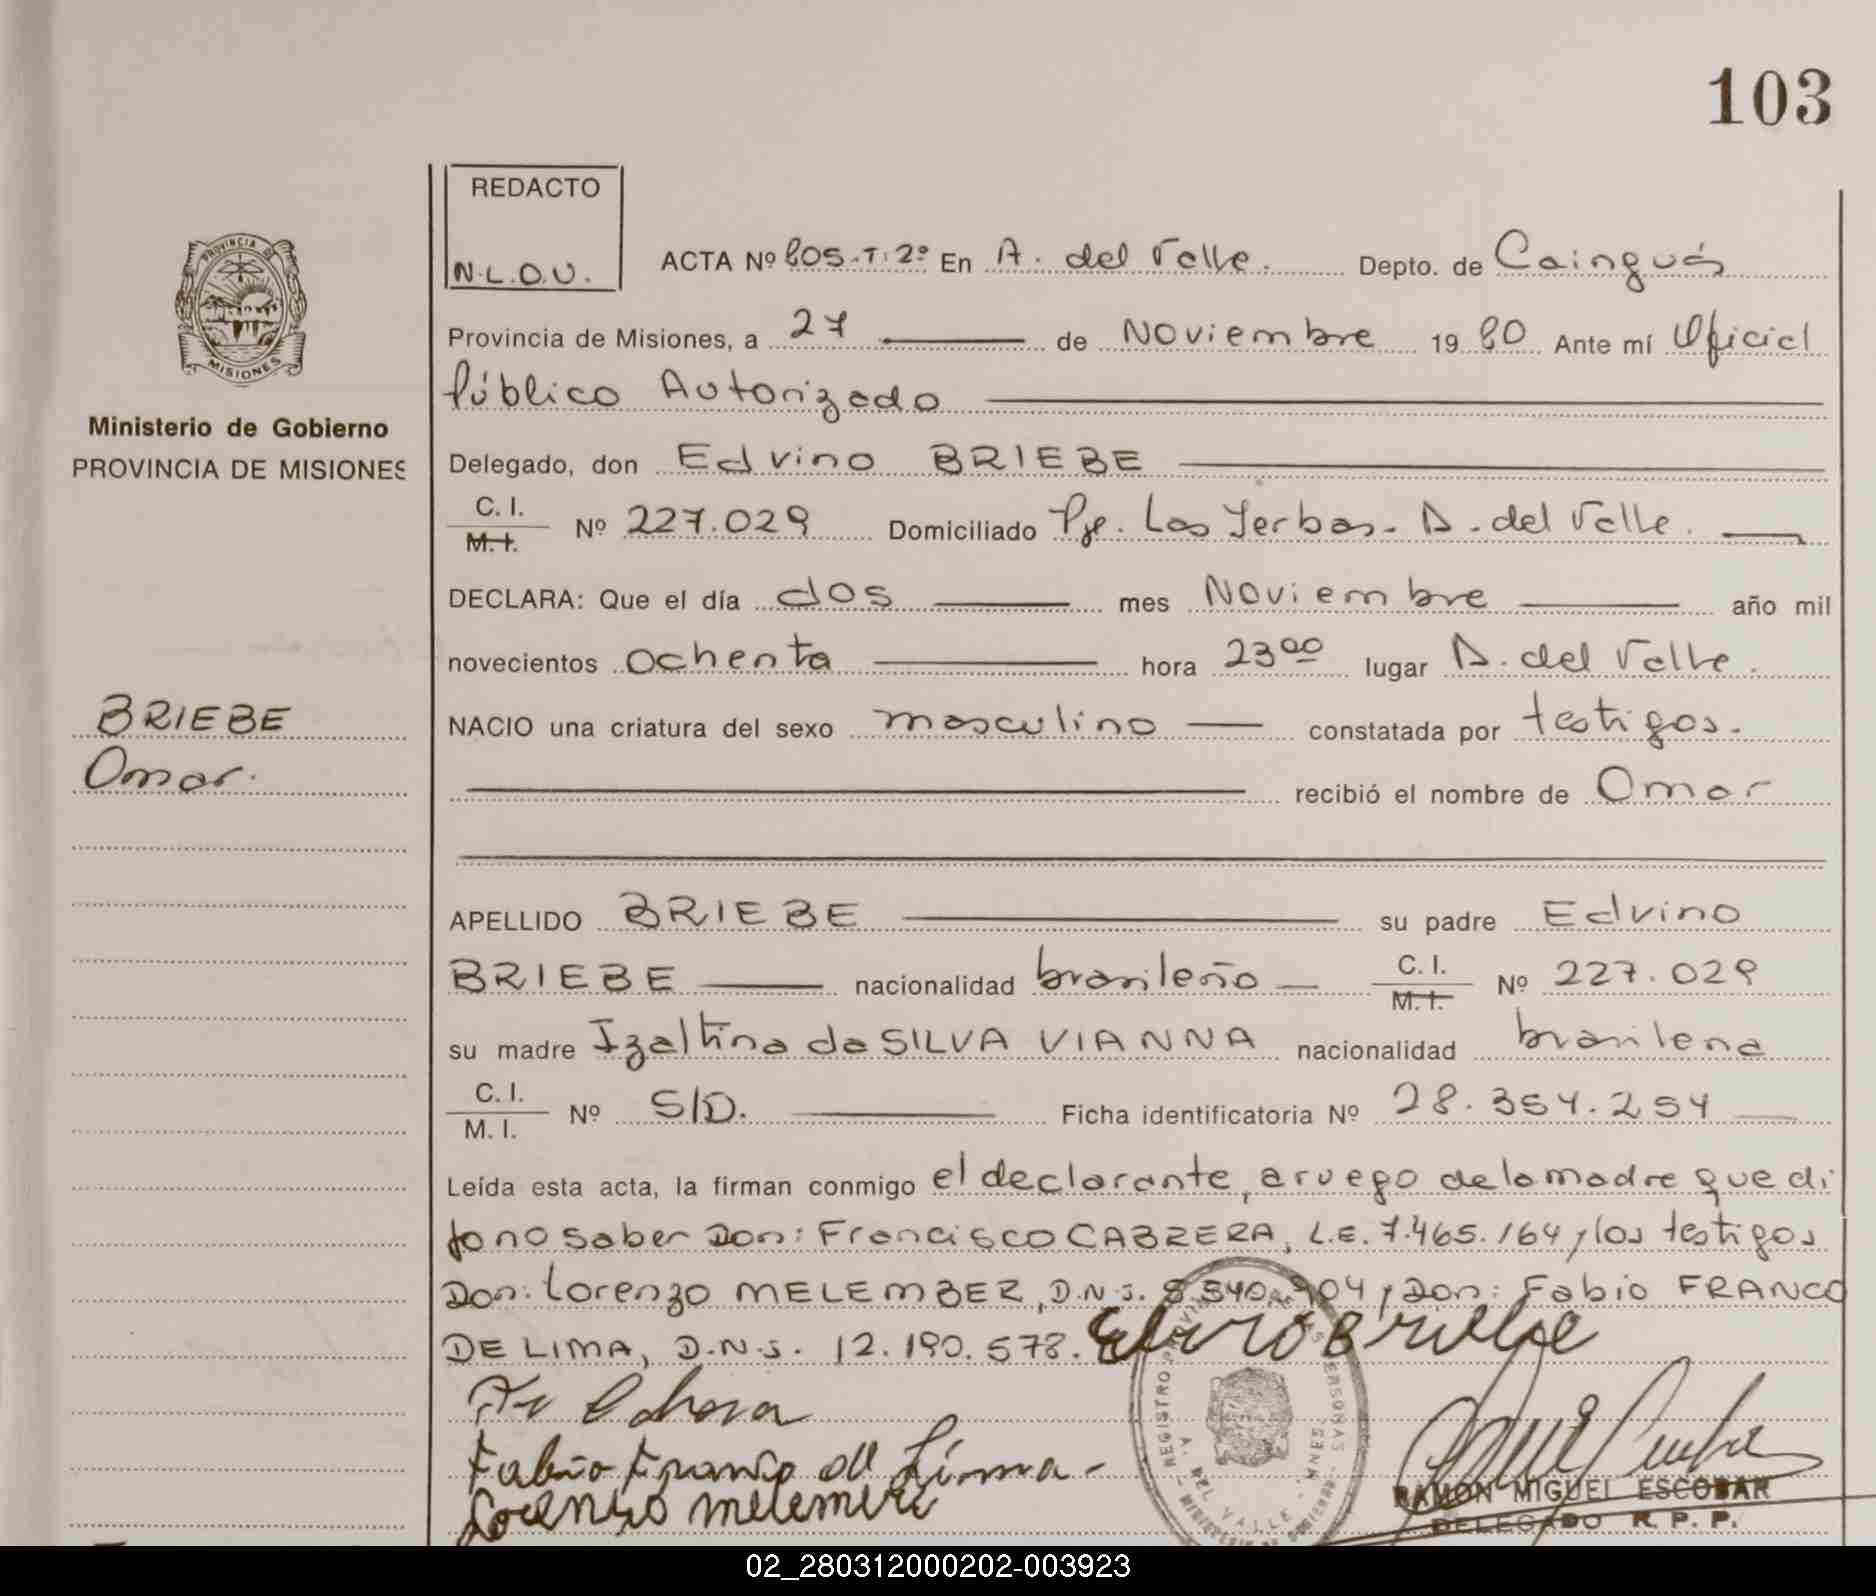 103
REDACTO
N.L.O.U.
ACTA Nº 805.T:2º En A. del Valle. Depto. de Cainguás
Provincia de Misiones, a 27 de Noviembre 1980 Ante mí Oficial
Público Autorizado
PROVINCIA DE
MISIONES
Ministerio de Gobierno
PROVINCIA DE MISIONES
Delegado, don Edvino BRIEBE
C. I.
M. I. Nº 227.029 Domiciliado Pje. Las Yerbas. A. del Valle.
DECLARA: Que el día dos mes Noviembre año mil
novecientos ochenta hora 23ºº lugar A. del Valle.
NACIO una criatura del sexo masculino constatada por testigos.
BRIEBE
Omar.
recibió el nombre de Omar
APELLIDO BRIEBE su padre Edvino
BRIEBE nacionalidad brasileño C. I.
M. I. Nº 227.029
su madre Izaltina da SILVA VIANNA nacionalidad brasilena
C. I.
M. I. Nº S/D. Ficha identificatoria Nº 28.354.254
Leída esta acta, la firman conmigo el declarante, a ruego de la madre que di
jo no saber Don: Francisco CABRERA, L.E. 7.465.164 y los testigos
Don: Lorenzo MELEMBER, D.N.I. 8.540.904 y Don: Fabio FRANCO
DE LIMA, D.N.I. 12.190.578.
Fabio Franco de Lima
Lorenzo
REGISTRO PROVINCIAL DE LAS PERSONAS
A. DEL VALLE - MNES.
MINISTERIO DE GOBIERNO
RAMON MIGUEL ESCOBAR
DELEGADO R. P. P.
02_280312000202-003923